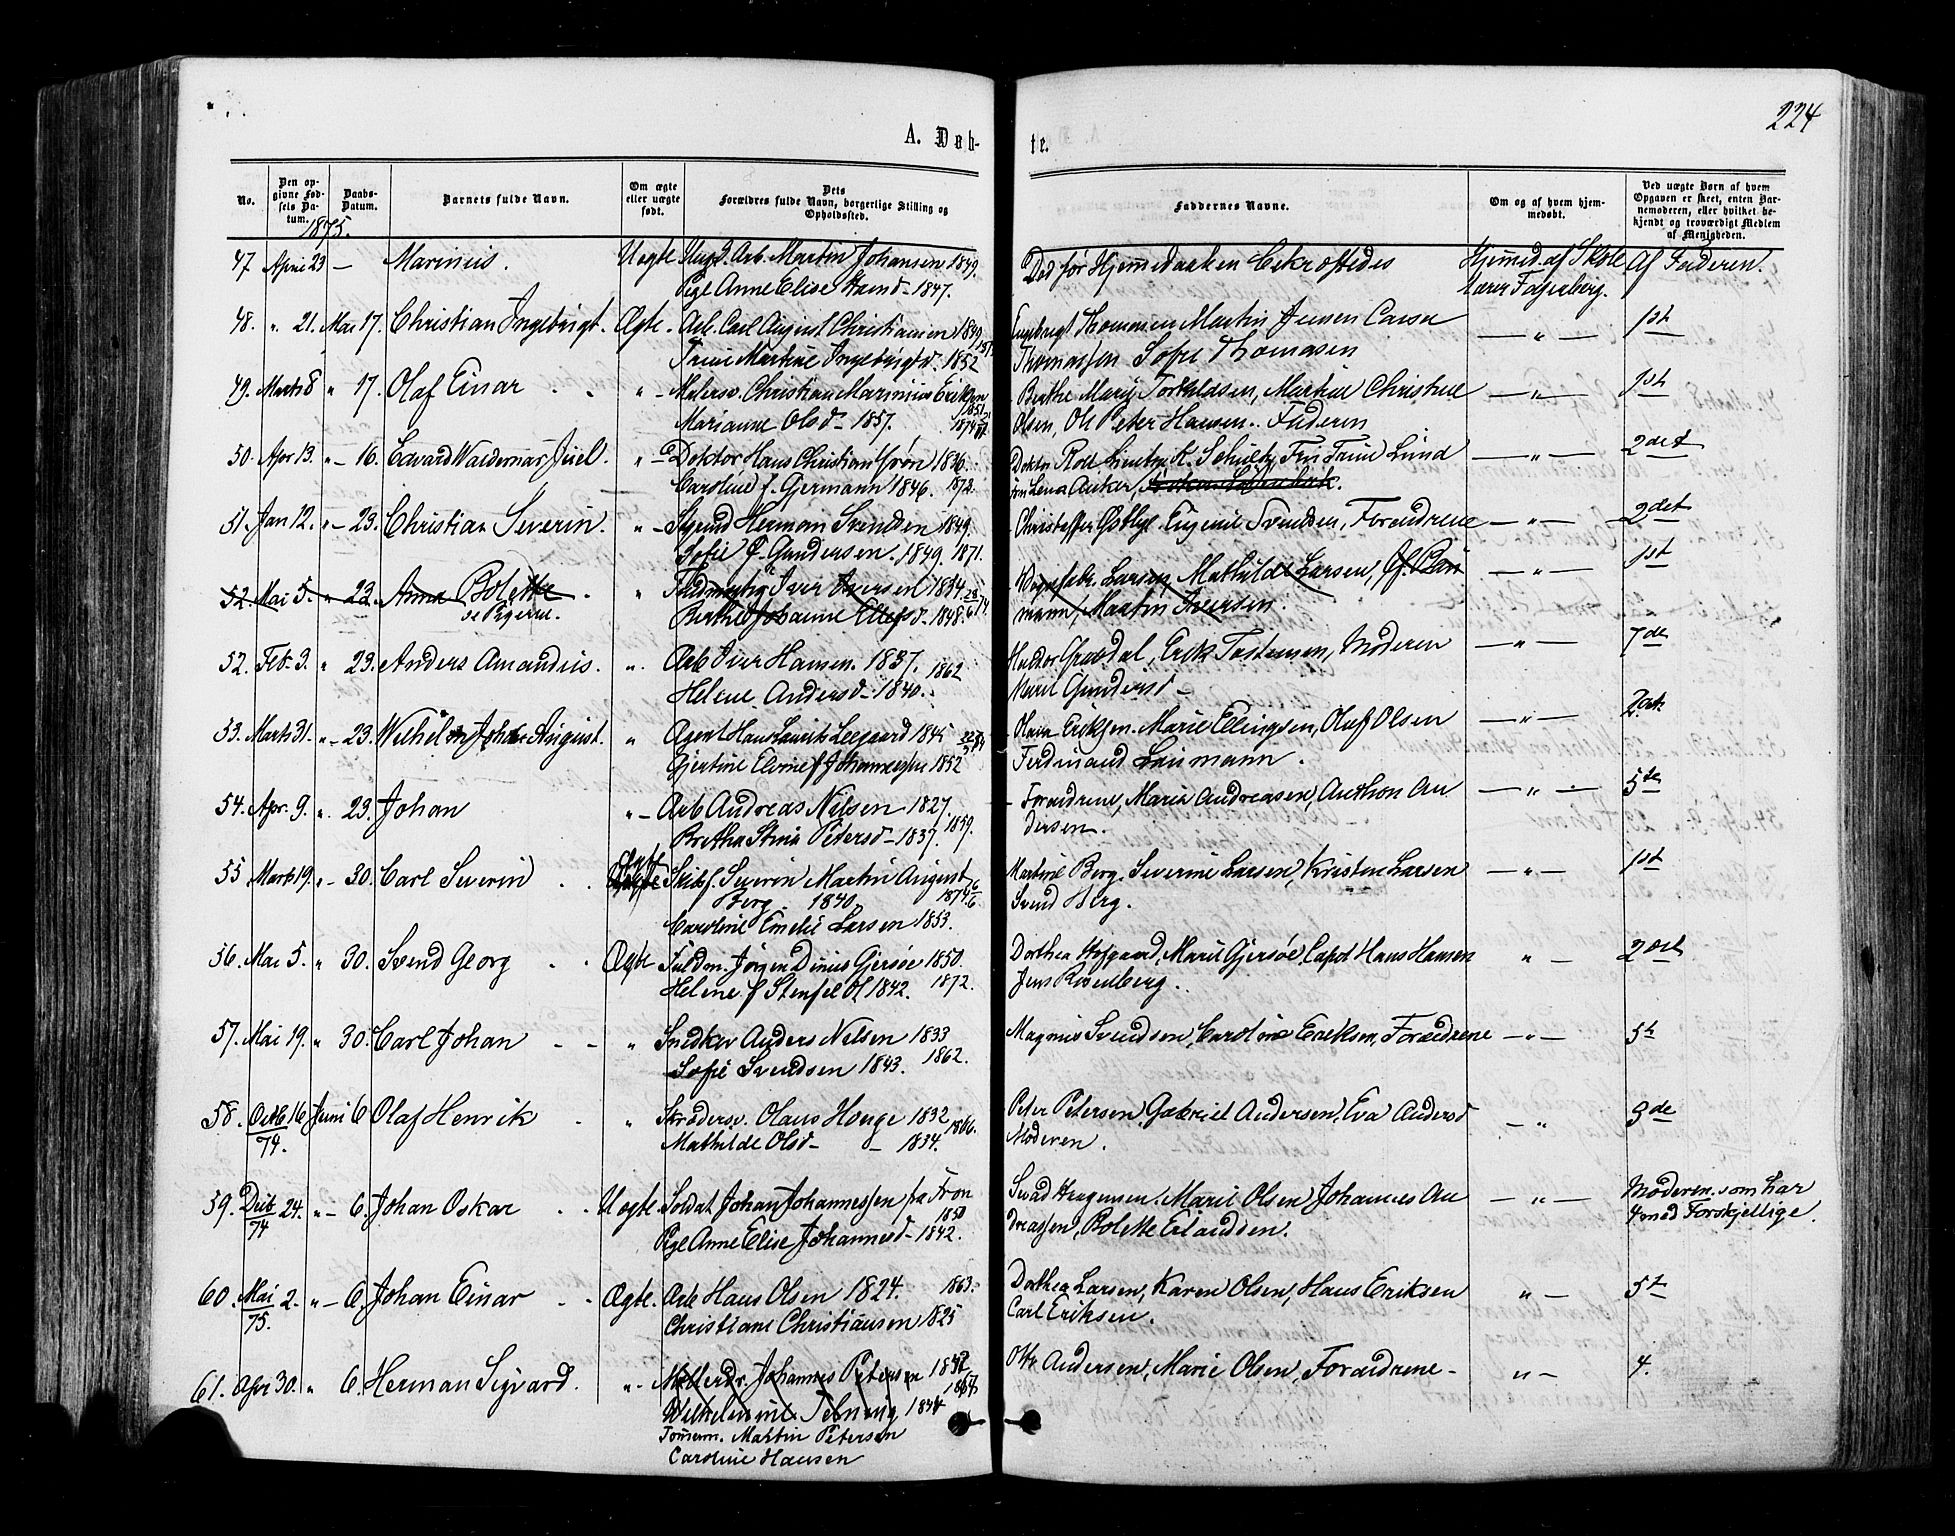 224
A. Døb-
te.
No.
Den op-
givne Fød-
sels Da-
tum.
Daabs-
Datum.
Barnets fulde Navn.
Om ægte
eller uægte
født.
Dets
Forældres fulde Navn, borgerlige Stilling og
Opholdssted.
Faddernes Navne.
Om og af hvem hjem-
medøbt.
Ved uægte Børn af hvem
Opgaven er skeet, enten Bar-
nemoderen, eller hvilket be-
kjendt og troværdigt Medlem
af Menigheden.
1875.
47 April 23 — Marinius. Uægte Ungk. Arb. Martin Johansen 1849. Død før Hjemmedaaben bekræftedes Hjemmed. af Skole Af Faderen.
Pige Anne Elise 1847. lærer Fagerberg.
48. " 21. Mai 17. Christian Ingebrigt. Ægte. Arb. Carl August Christiansen 1849 Ingebrigt Thomasen Martin Jensen — " — 1st
Martine Ingebrigtsd. 1852 Thomassen Sofie Thomasen
49. Marts 8 " 17. Olaf Einar " — Malersv. Christian Marinius Eriksen Berthe Marie Torkildsen, Martine Christine — " — 1st
1851
Marianne Olsd — 1857. 1874 Olsen, Ole Peter Hansen. Faderen
50. Apr 13. " — 16. Edvard Waldemar Juel. " — Doktor Hans Christian Grøn 1836. Doktor Roll Lieutn. K. Schultz, Frk Trine Lund — " — 2det
Caroline f. Gjermann 1846. 1872. Lena Anker,
51. Jan 12. " — 23. Christian Severin. " — Herman Svendsen 1849. Christoffer Østbye Eugenie Svendsen, Forældrene — " — 2det
Sofie f. Gundersen. 1849. 1871.
52. Mai 5. " 23. Anna Bolette " Iver Iversen 1844 Larsen, Mathilde Larsen, — " — 1st
se Pigerne. Berthe Johanne Ellefsd. 1848. mann, Martin Iversen.
52. Feb. 3. " 23. Anders Amandus. " Arb Iver Hansen. 1837. 1862 Grøsdal, Erik Tostensen, Moderen — " — 7de
Helene Andersd — 1840. Marie Gundersd —
53. Marts 31. " — 23. Wilhelm Johan August. " Agent Hans Lauritz Leegaard 1845 Olava Eriksen. Marie Ellingsen, Olaf Olsen — " — 2det
Gjertine Elvine f Johannessen 1852 Ferdinand Laumann.
54. Apr. 9. " 23. Johan " — Arb Andreas Nilsen 1827. Forældrene, Maria Andreasen, Anthon An — " — 5te
Bertha Stina Petersd — 1837. 1859. dersen.
55 Marts 19. " — 30. Carl Severin Skibsf. Severin Martin August Martine Berg. Severine Larsen, Kristen Larsen — " — 1st
Berg. 1840. 1874 Svend Berg.
Caroline Emilie Larsen 1853.
56. Mai 5. " 30. Svend Georg Ægte Fuldm. Jørgen Dinius Gjersøe 1850. Dorthea Hofgaard, Marie Gjersøe, Capt Hans Hansen " — 2det
Helene f Stenfelt 1842. 1872. Jens Rosenberg.
57. Mai 19. " 30. Carl Johan — " Snedker Anders Nilsen 1833 Magnus Svendsen, Caroline Eriksen, Forældrene — " — 5t
Sofie Svendsen 1843. 1862.
58. Octb 16 Juni 6. Olaf Henrik " Skrædersv. Olaus Houge 1832 Peter Petersen, Gabriel Andersen, Eva Andersd — " 3de
74. Mathilde Olsd — 1834. 1866. Moderen.
59. Decb 24. " — 6. Johan Oskar Uægte. Soldat Johan Johannessen fra Fron Marie Olsen Johannes An — " — Moderen. som har
74 1850 dreassen, Bolette Erlandsen. 4 med Forskjellige.
Pige Anne Elise Johannesd — 1842.
60. Mai 2. " — 6. Johan Einar Ægte. Arb Hans Olsen 1824. 1863. Dorthea Larsen, Karen Olsen, Hans Eriksen " — 5t
75. Christiane Christiansen 1825 Carl Eriksen.
61. Apr 30. " 6. Herman Sigvard. " — Møllerdr. Johannes Petersen 1842 Otto Andersen, Marie Olsen, Forældrene — " — 4.
Wilhelmine 1844
Martin Petersen
Caroline Hansen